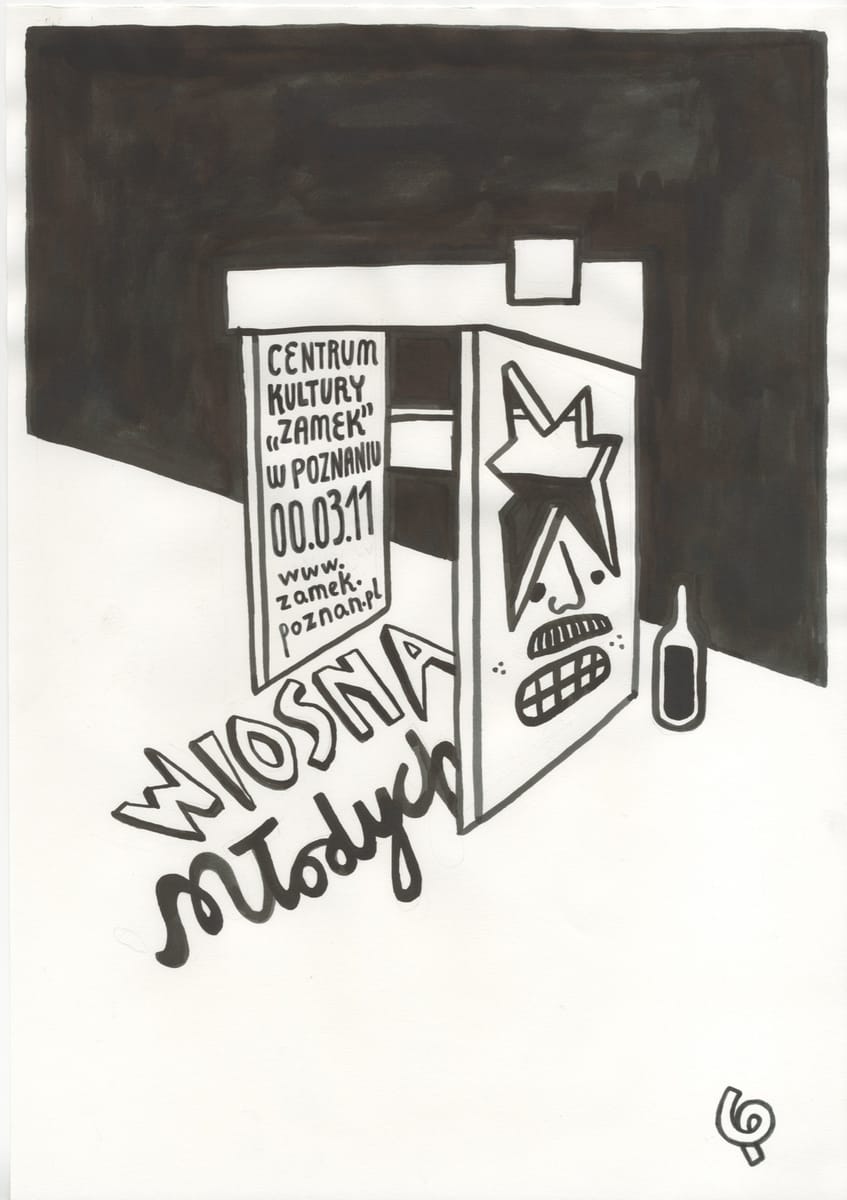 CENTRUM
KULTURY
„ZAMEK”
W POZNANIU
00.03.11
www.
zamek.
poznan.pl
WIOSNA
Młodych